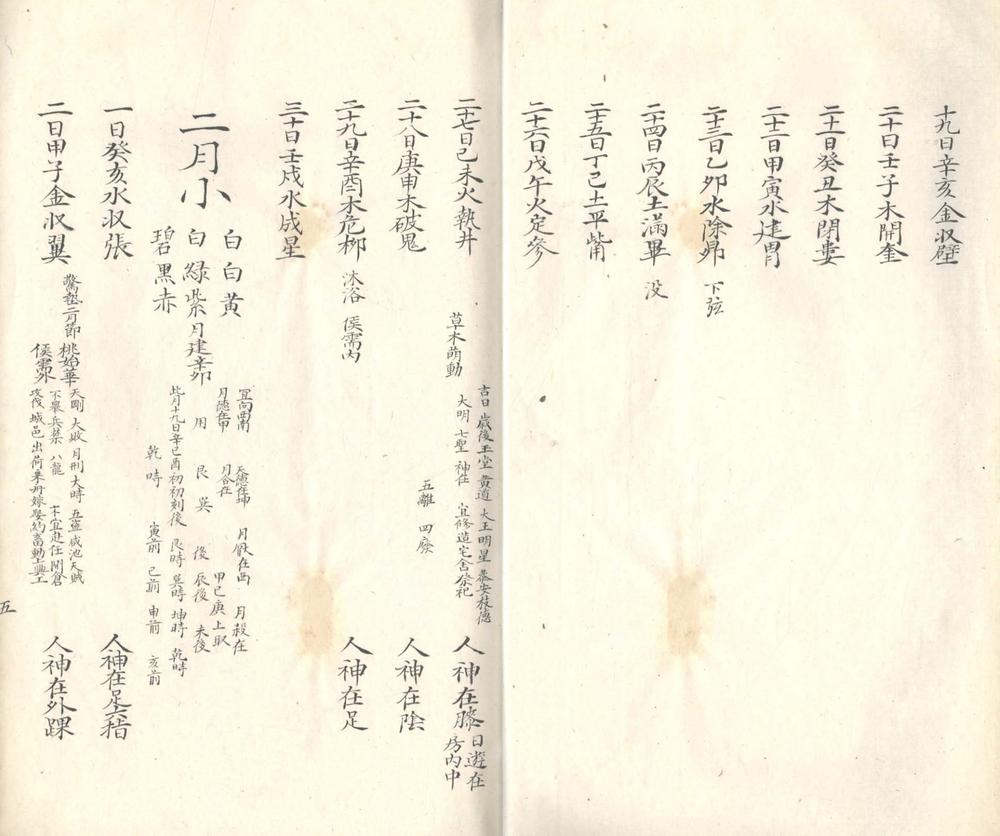 十九日辛亥金収壁
二十日壬子木開奎
二十一日癸丑木閉婁
二十二日甲寅水建胃
二十三日乙卯水除昴 下弦
二十四日丙辰土滿畢 没
二十五日丁巳土平觜
二十六日戊午火定參
二十七日己未火執井 草木萌動 吉日 歳後 玉堂 黄道 大王明星 恭安枝德 大明 七聖 神在 宜修造宅舎祭祀 人神在膝 日遊在房内中
二十八日庚申木破鬼 五離 四廢 人神在陰
二十九日辛酉木危柳 沐浴 侯需内 人神在足
三十日壬戌水成星
二月小
白 白 黄
白 緑 紫 月建辛卯
碧 黒 赤
宜向西南 天德在坤 月厭在酉 月殺在
月德在甲 月合在 甲己庚上取
用 艮 巽 後 辰後 未後
此月十九日辛巳酉初初刻後 艮時 巽時 坤時 乾時
乾時 寅前 巳前 申前 亥前
一日癸亥水収張 人神在足大指
二日甲子金収翼 驚蟄二月節 桃始華 侯需外 天剛 大敗 月刑 大時 五盗 咸池 天賊 不擧兵禁 八龍 不宜赴任 開倉 攻伐城邑出荷乗舟嫁娶納畜動土興工 人神在外踝
五